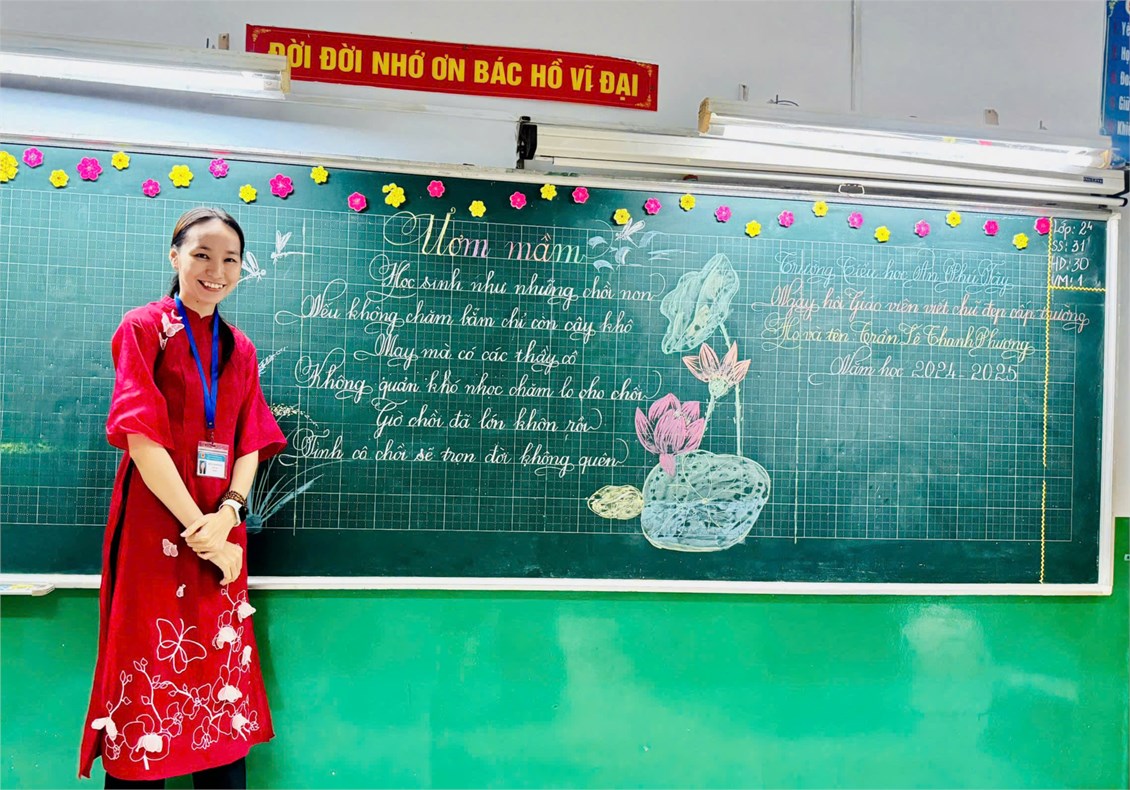 ĐỜI ĐỜI NHỚ ƠN BÁC HỒ VĨ ĐẠI
Ươm mầm
Học sinh như những chồi non
Nếu không chăm bẵm chỉ còn cây khô
May mà có các thầy cô
Không quản khó nhọc chăm lo cho chồi
Giờ chồi đã lớn khôn rồi
Tình cô chồi sẽ trọn đời không quên
Trường Tiểu học An Phú Tây
Ngày hội Giáo viên viết chữ đẹp cấp trường
Họ và tên Trần Lê Thanh Phương
Năm học 2024-2025
Lớp: 24
SS: 31
HD: 30
VM: 1